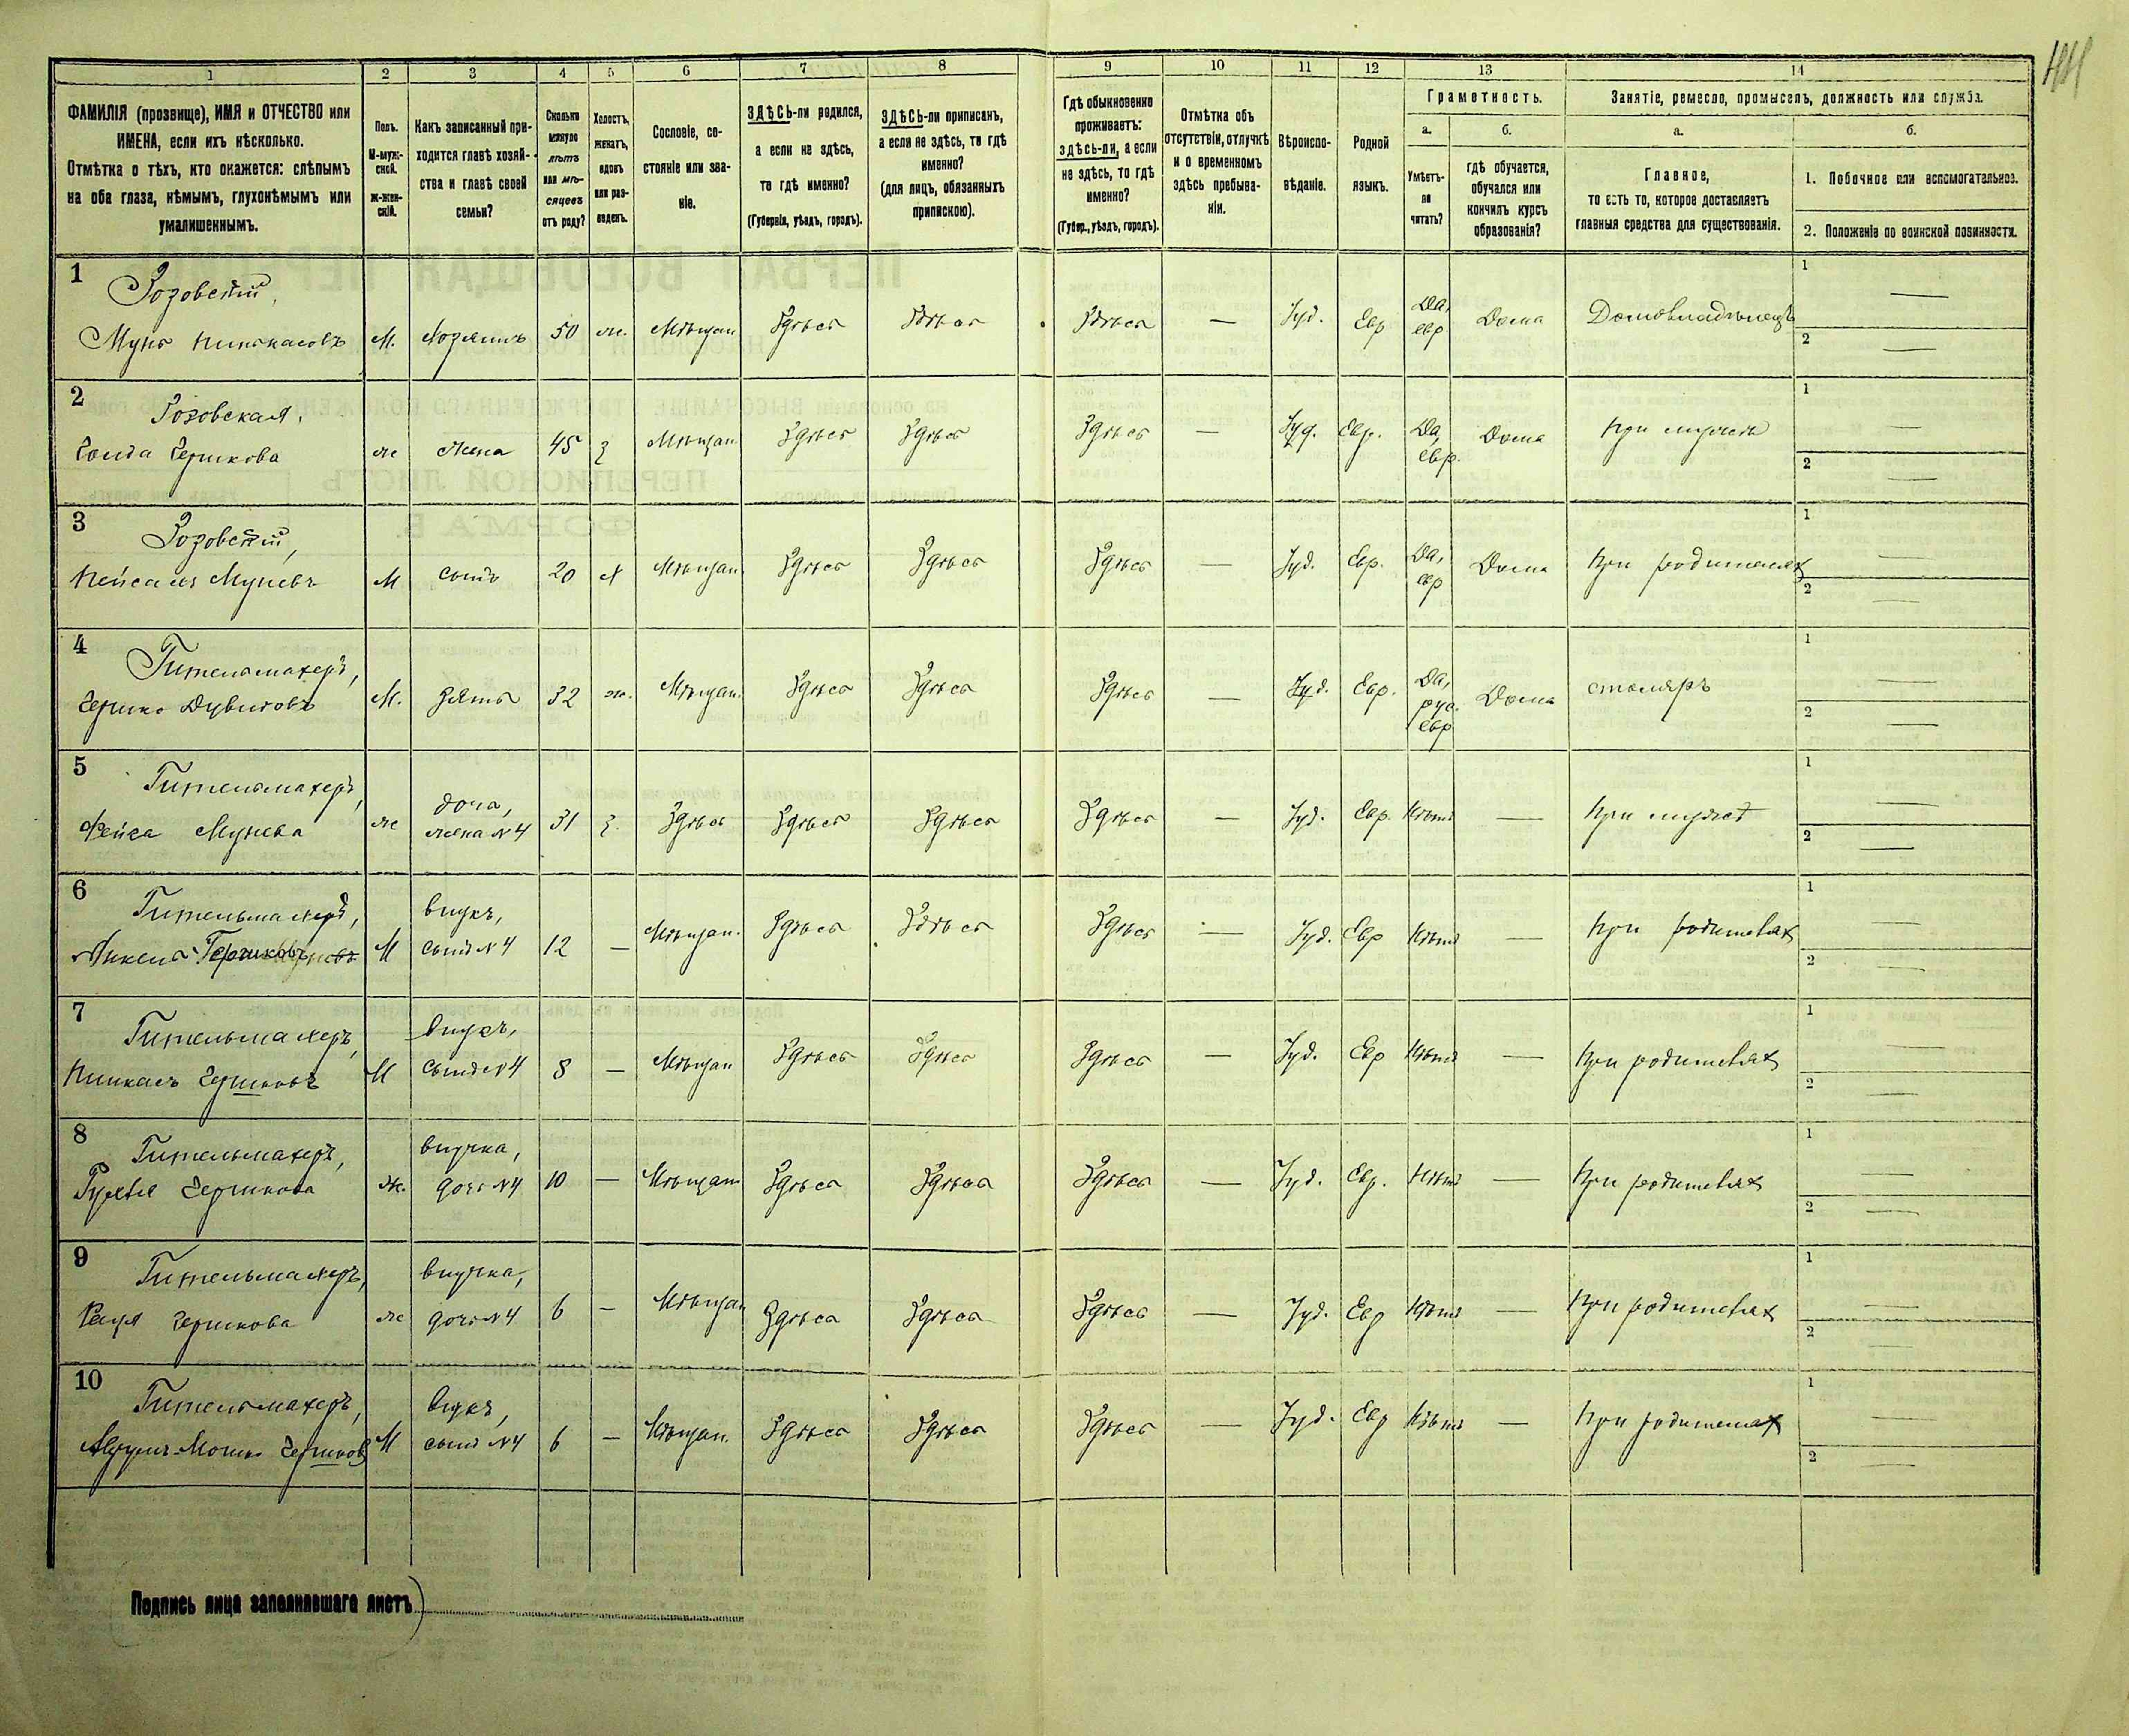 1 2 3 4 5 6 7 8 9 10 11 12 13 14
ФАМИЛІЯ (прозвище), ИМЯ и ОТЧЕСТВО или
ИМЕНА, если ихъ нѣсколько.
Отмѣтка о тѣхъ, кто окажется: слѣпымъ
на оба глаза, нѣмымъ, глухонѣмымъ или
умалишеннымъ.
Полъ.
М-муж-
ской.
ж-жен-
скій.
Какъ записанный при-
ходится главѣ хозяй-
ства и главѣ своей
семьи?
Сколько
минуло
лѣтъ
или мѣ-
сяцевъ
отъ роду?
Холостъ,
женатъ,
вдовъ
или раз-
веденъ.
Сословіе, со-
стояніе или зва-
ніе.
ЗДѢСЬ-ли родился,
а если не здѣсь,
то гдѣ именно?
(Губернія, уѣздъ, городъ).
ЗДѢСЬ-ли приписанъ,
а если не здѣсь, то гдѣ
именно?
(для лицъ, обязанныхъ
припискою).
Гдѣ обыкновенно
проживаетъ:
здѣсь-ли, а если
не здѣсь, то гдѣ
именно?
(Губер., уѣздъ, городъ).
Отмѣтка объ
отсутствіи, отлучкѣ
и о временномъ
здѣсь пребыва-
ніи.
Вѣроиспо-
вѣданіе.
Родной
языкъ.
Грамотность.
а.
Умѣетъ-
ли
читать?
б.
гдѣ обучается,
обучался или
кончилъ курсъ
образованія?
Занятіе, ремесло, промыселъ, должность или служба.
а.
Главное,
то есть то, которое доставляетъ
главныя средства для существованія.
б.
1. Побочное или вспомогательное.
2. Положеніе по воинской повинности.
1 Розовскій,
Мунь Пинькасовъ М. Хозяинъ 50 ж. Мѣщан Здѣсь Здѣсь Здѣсь — Іуд. Евр Да, евр Дома Домовладѣлецъ 1 — 2 —
2 Розовская,
Гершкова ж жена 45 З Мѣщан Здѣсь Здѣсь Здѣсь — Іуд. Евр. Да, евр. Дома При мужѣ 1 — 2 —
3 Розовскій,
Пейсахъ Муневъ М сынъ 20 х Мѣщан Здѣсь Здѣсь Здѣсь — Іуд. Евр. Да, евр Дома При родителях 1 — 2 —
4 Гительмахеръ,
Гершко Дувидовъ М. зять 32 ж. Мѣщан. Здѣсь Здѣсь Здѣсь — Іуд. Евр. Да, рус. евр Дома столяръ 1 — 2 —
5 Гительмахеръ,
Фейга Мунева ж дочь, жена № 4 31 З. Здѣсь Здѣсь Здѣсь Здѣсь — Іуд. Евр. Нѣтъ — При мужѣ 1 — 2 —
6 Гительмахеръ,
Гершковъ М внукъ, сынъ № 4 12 — Мѣщан. Здѣсь Здѣсь Здѣсь — Іуд. Евр Нѣтъ — При родителях 1 — 2 —
7 Гительмахеръ,
Пинкасъ Гершковъ М внукъ, сынъ № 4 8 — Мѣщан Здѣсь Здѣсь Здѣсь — Іуд. Евр Нѣтъ — При родителях 1 — 2 —
8 Гительмахеръ,
Гершкова ж. внучка, дочь № 4 10 — Мѣщан Здѣсь Здѣсь Здѣсь — Іуд. Евр. Нѣтъ — При родителях 1 — 2 —
9 Гительмахеръ,
Гершкова ж внучка, дочь № 4 6 — Мѣщан Здѣсь Здѣсь Здѣсь — Іуд. Евр Нѣтъ — При родителях 1 — 2 —
10 Гительмахеръ,
Мошко Гершков М внукъ, сынъ № 4 6 — Мѣщан. Здѣсь Здѣсь Здѣсь — Іуд. Евр Нѣтъ — При родителях 1 — 2 —
Подпись лица заполнявшаго листъ)